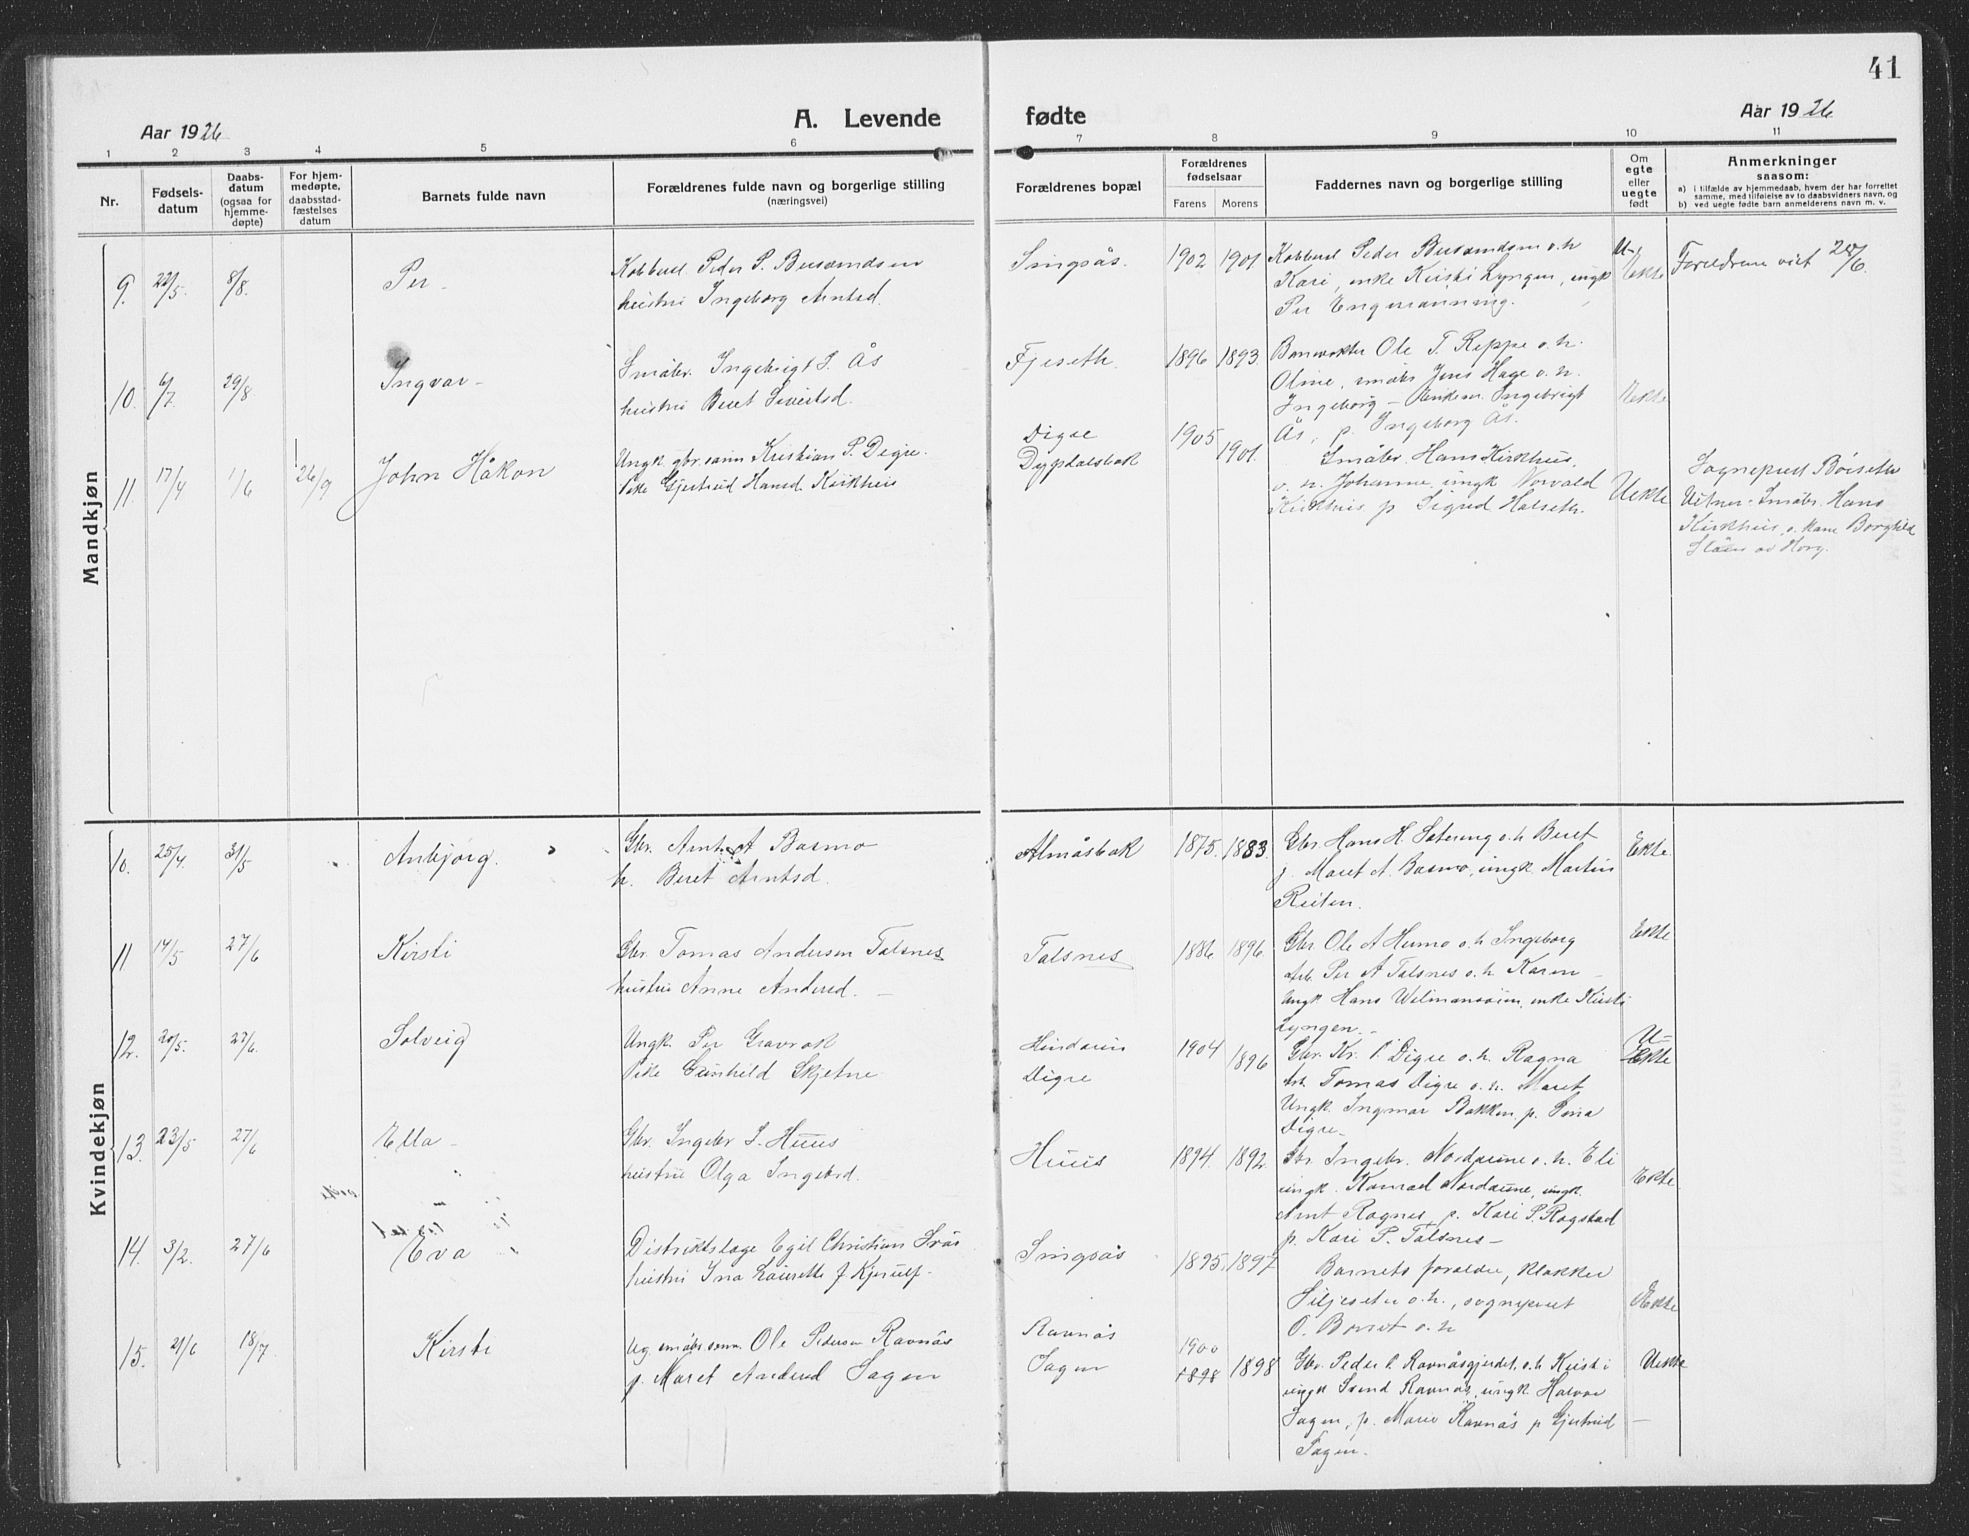 41
Aar 1926
A. Levende fødte
Aar 1926
1 2 3 4 5 6 7 8 9 10 11
Nr.
Fødsels-
datum
Daabs-
datum
(ogsaa for
hjemme-
døpte)
For hjem-
medøpte,
daabsstad-
fæstelses
datum
Barnets fulde navn
Forældrenes fulde navn og borgerlige stilling
(næringsvei)
Forældrenes bopæl
Forældrenes
fødselsaar
Farens Morens
Faddernes navn og borgerlige stilling
Om
egte
eller
uegte
født
Anmerkninger
saasom:
a) i tilfælde av hjemmedaab, hvem der har forrettet
samme, med tilføielse av to daabsvidners navn, og
b) ved uegte fødte barn anmelderens navn m. v.
Mandkjøn
9. 22/5. 8/8. Per
Peder P.
hustru Ingeborg Arntsd.
Singsås. 1902 1901
Peder o. h
Kari, enke Kirsti Lyngen, ungk
Per
U-
Ekte
Forældrene viet 20/6.
10. 6/7. 29/8 Ingvar
Småbr. Ingebrigt S. Ås
hustru Beret Sivertsd.
Fjeseth 1896 1893.
Banevokter Ole T. Reppe o. h.
Oline, småbr Jens Hage o. h.
Ingeborg - Ingebrigt
Ås, p. Ingeborg Ås.
Uekte
11. 17/4 1/6 26/9 John Håkon
Ungk. gbr.sønn Kristian P. Digre.
Pike Gjertrud Hansd. Kirkhus
Digre
Dypdalsbak
1905 1901.
Småbr. Hans Kirkhus,
o. h. Johanne, ungk Norvald
Kirkhus p Sigrid Halseth.
Uekte
Sogneprest Börseth
Vitner: Småbr. Hans
Kirkhus, o. kone Borghild
av Horg.
Kvindekjøn
10. 25/4 31/5 Anbjörg.
Gbr. Arnt A Basmo
h. Beret Arntsd.
Almåsbak 1875. 1883.
Gbr Hans H. o. h Beret
p. Maret A. Basmo, ungk. Martin
Reiten.
Ekte
11 14/5 27/6 Kirsti
Gbr Tomas Andersen Talsnes
hustru Anne Andersd. -
Talsnes 1886 1896.
Gbr Ole A Hermo o. h Ingeborg
Arb. Per A Talsnes o. h Karen -
Ungk Hans enke Kirsti
Lyngen. -
Ekte
12. 20/5. 27/6. Solveig
Ungk. Per Gravrok
Pike Gunhild Skjetne
Digre
1904 1896
Gbr. Kr. P. Digre o. h. Ragna
Tomas Digre o. h. Maret
Ungk. Ingmar Bakken, p.
Digre -
U-
Ekte
13. 23/5 27/6 Ella -
Gbr. Ingebr S. Huus
hustru Olga Ingebrd.
Huus 1894. 1892.
Gbr Ingebr. Nordaune o. h. Eli
ungk. Konrad Nordaune, ungk.
Arnt Rognes p. Kari P. Rogstad
p. Kari P. Talsnes -
Ekte
14. 3/2. 27/6 Eva
Distriktslæge Egil Christian
hustru Ina Laurette f Kjerulf.
Singsås 1895. 1897
Barnets foreldre, klokker
Siljeseter o. h., sogneprest
o. h
Ekte
15. 21/6 18/7 Kirsti
Ug. småbr.sønn Ole Pedersen Ravnås
p. Maret Andersd Sagen
Ravnås
Sagen
1900
1898 1898
Gbr. Peder P. Ravnåsgjerdet, o. h Kirsti
ungk Svend Ravnås, ungk. Halvor
Sagen, p. Marie Ravnås p Gjertrud
Sagen.
Uekte